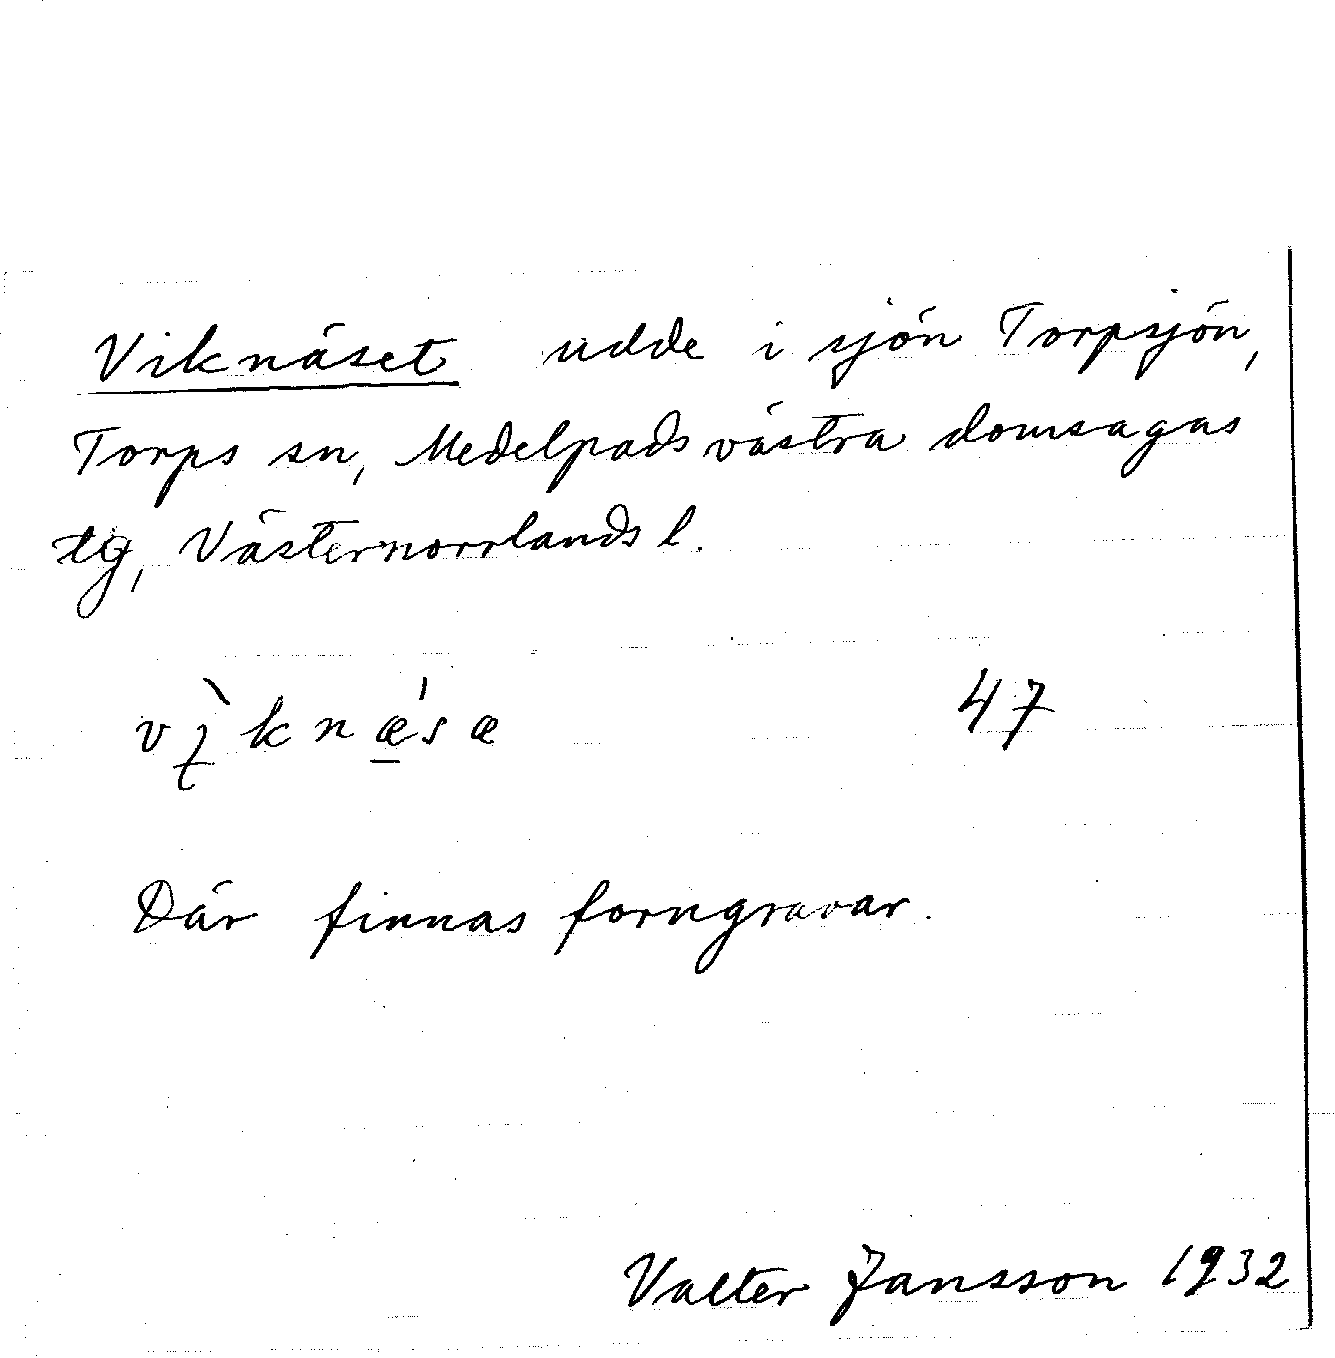 Viknäset udde i sjön Torpsjön,
Torps sn, Medelpads västra domsagas
tg, Västernorrlands l.
vì̖knǽ̱sæ 47
Där finnas forngravar.
Valter Jansson 1932